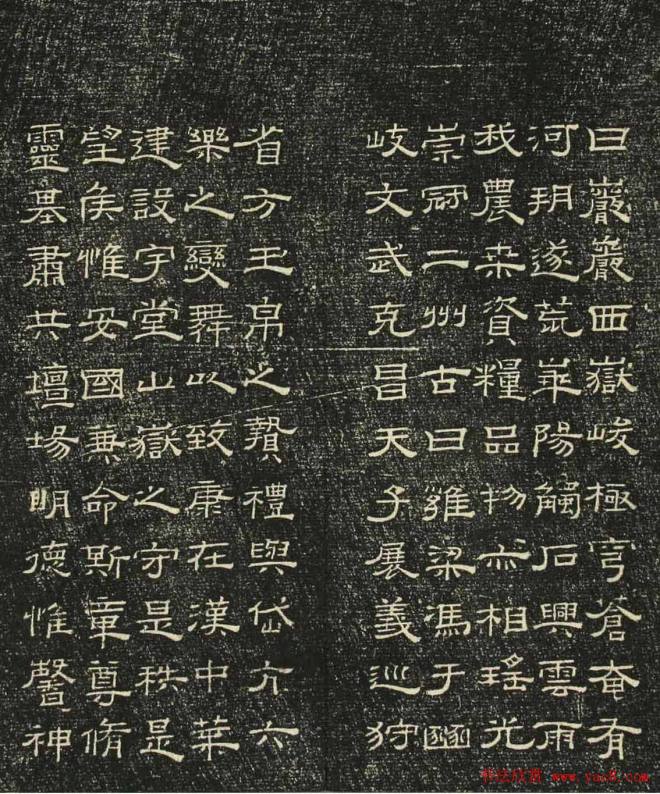 曰巖巖西嶽峻極穹蒼奄有
河朔遂荒華陽觸石興雲雨
我農桒資糧品物亦相瑤光
崇冠二州古曰雍梁馮于豳
岐文武克昌天子展義巡狩
省方玉帛之贄禮與岱亢六
樂之變舞以致康在漢中葉
建設宇堂山嶽之守是秩是
望侯惟安國兼命斯章尊脩
靈基肅共壇場明德惟馨神
书法欣赏 www.yac8.com